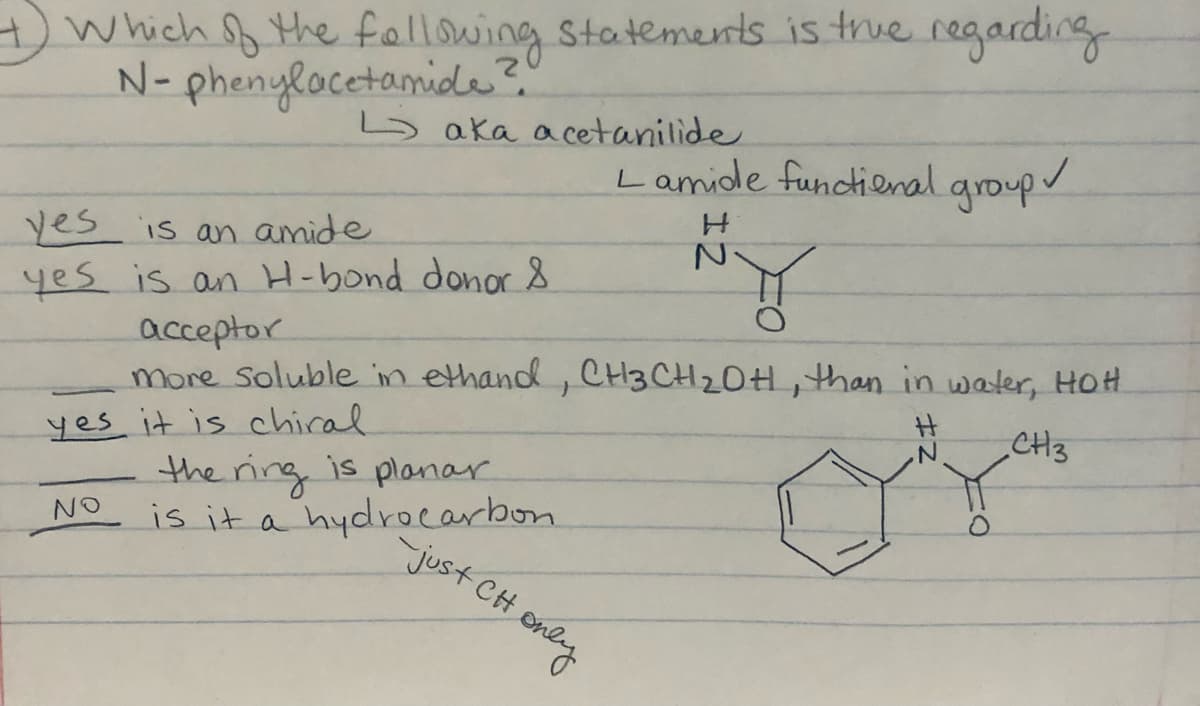 +) Which of the following statements is true regarding
N-phenylacetamide?
↳ aka acetanilide
∟ amide functional group ✓
yes is an amide
yes is an H-bond donor &
acceptor
H
N
O
___ more soluble in ethanol, CH3CH2OH, than in water, HOH
yes it is chiral
___ the ring is planar
NO is it a hydrocarbon
just CH only
H
N
CH3
O